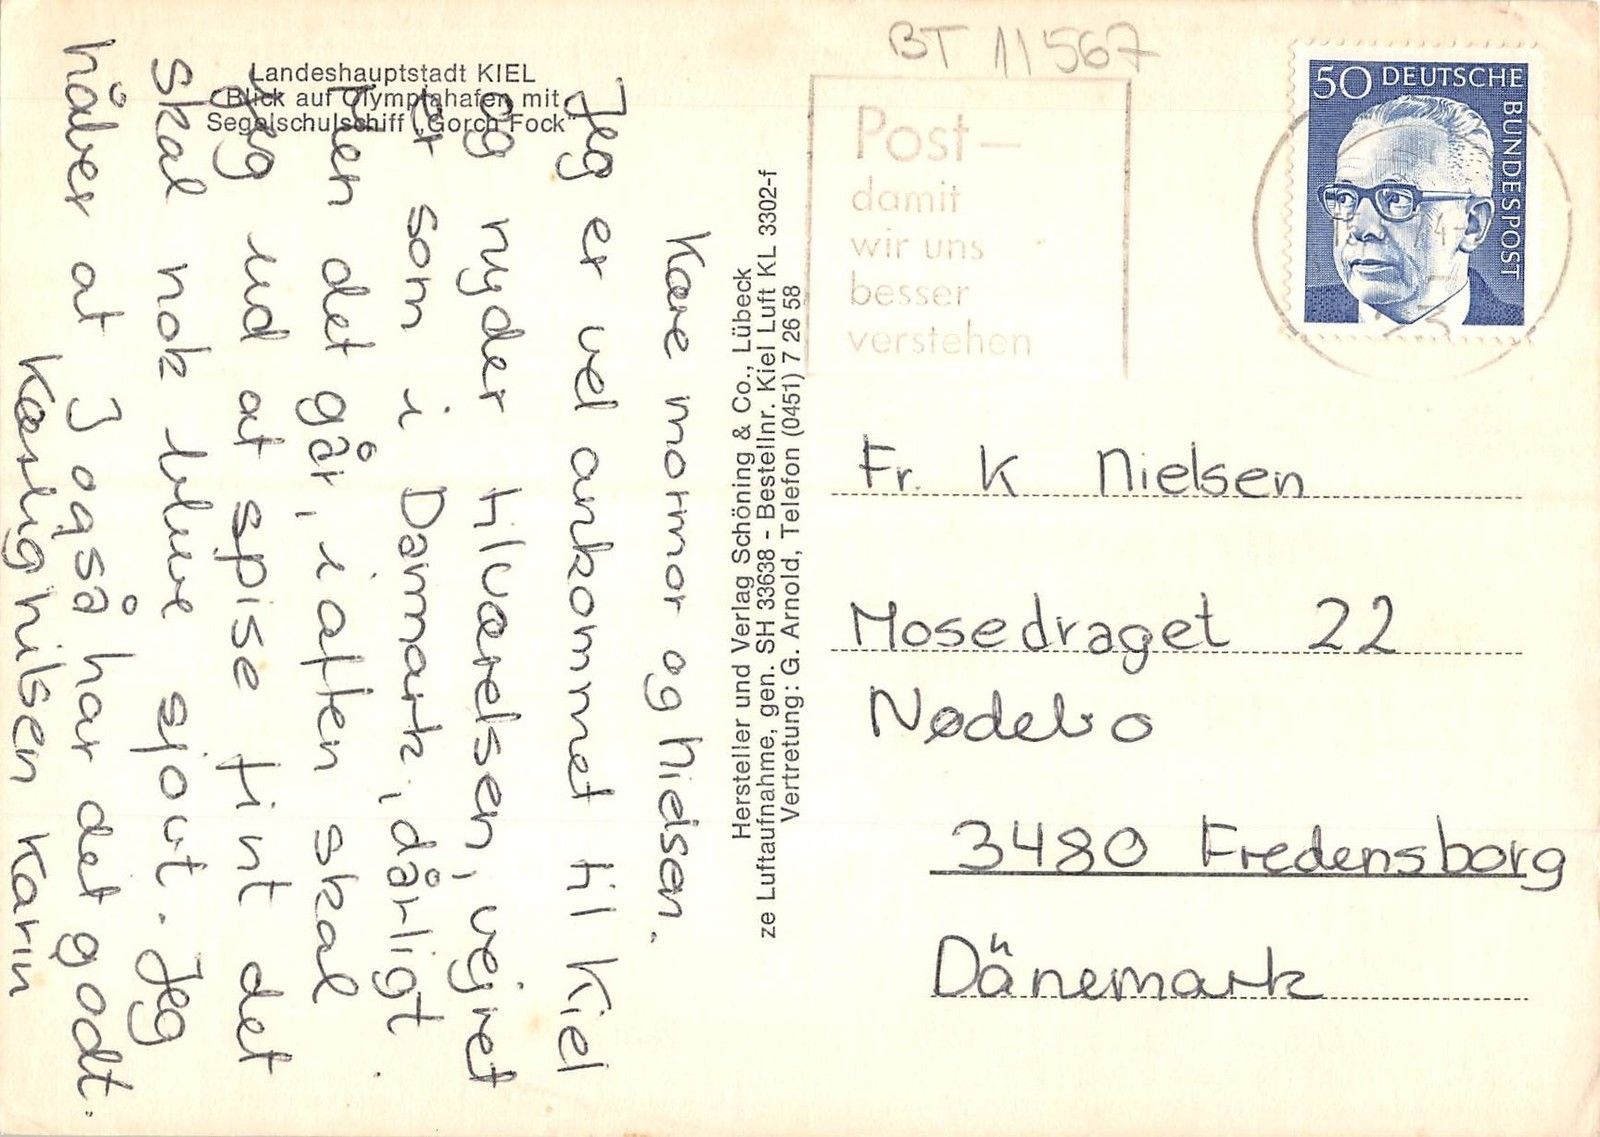 BT 11567
Landeshauptstadt KIEL
Blick auf Olympiahafen mit
Segelschulschiff „Gorch Fock"
Kære mormor og Nielsen.
Jeg er vel ankommet til Kiel
og nyder tilværelsen, vejret
er som i Danmark, dårligt.
Men det går, i aften skal
jeg ud at spise fint det
skal nok blive sjovt. Jeg
håber at I også har det godt.
Kærlig hilsen Karin
Hersteller und Verlag Schöning & Co., Lübeck
ze Luftaufnahme, gen. SH 33638 - Bestellnr. Kiel Luft KL 3302-f
Vertretung: G. Arnold, Telefon (0451) 7 26 58
Post-
damit
wir uns
besser
verstehen
50 DEUTSCHE
BUNDESPOST
Fr. K Nielsen
Mosedraget 22
Nødebo
3480 Fredensborg
Dänemark